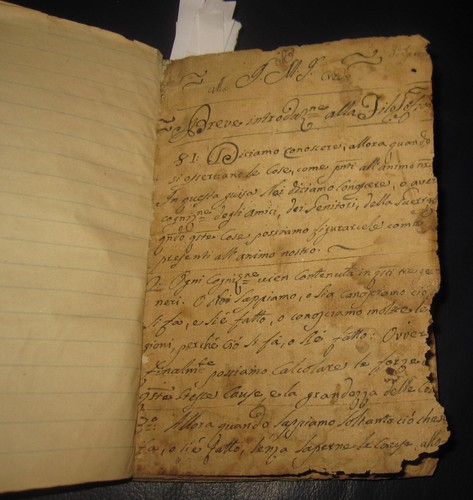 J. M. J.
Breve introduz:ne alla Filosof
§ 1. Diciamo conoscere, allora quando
si osservano le Cose, come pnti all'animo
In questa guisa Noi diciamo conoscere, o aver
cogniz:ne degli amici, dei Genitori, della
qndo qste Cose possiamo figurarcele come
presenti all'animo nostro.
2. Ogni Cogniz:ne vien contenuta in già tre ge-
neri. O Noi sappiamo, o sia conosciamo ciò
si fa, e si è fatto, o conosciamo inoltre le
gioni, perchè ciò si fà, o si è fatto: Ovver
Finalmte possiamo Calcolare le forze
qste istesse Cause, e la grandezza delle Cose
3:o Allora quando sappiamo soltanto ciò che si
fà, o si è fatto, senza saperne le Cause, allo